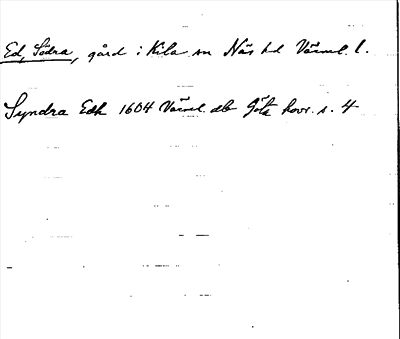 Ed, Södra, gård i Kila sn Näs hd Värml. l.
Syndra Edh 1604 Värml. db Göta hovr. s. 4